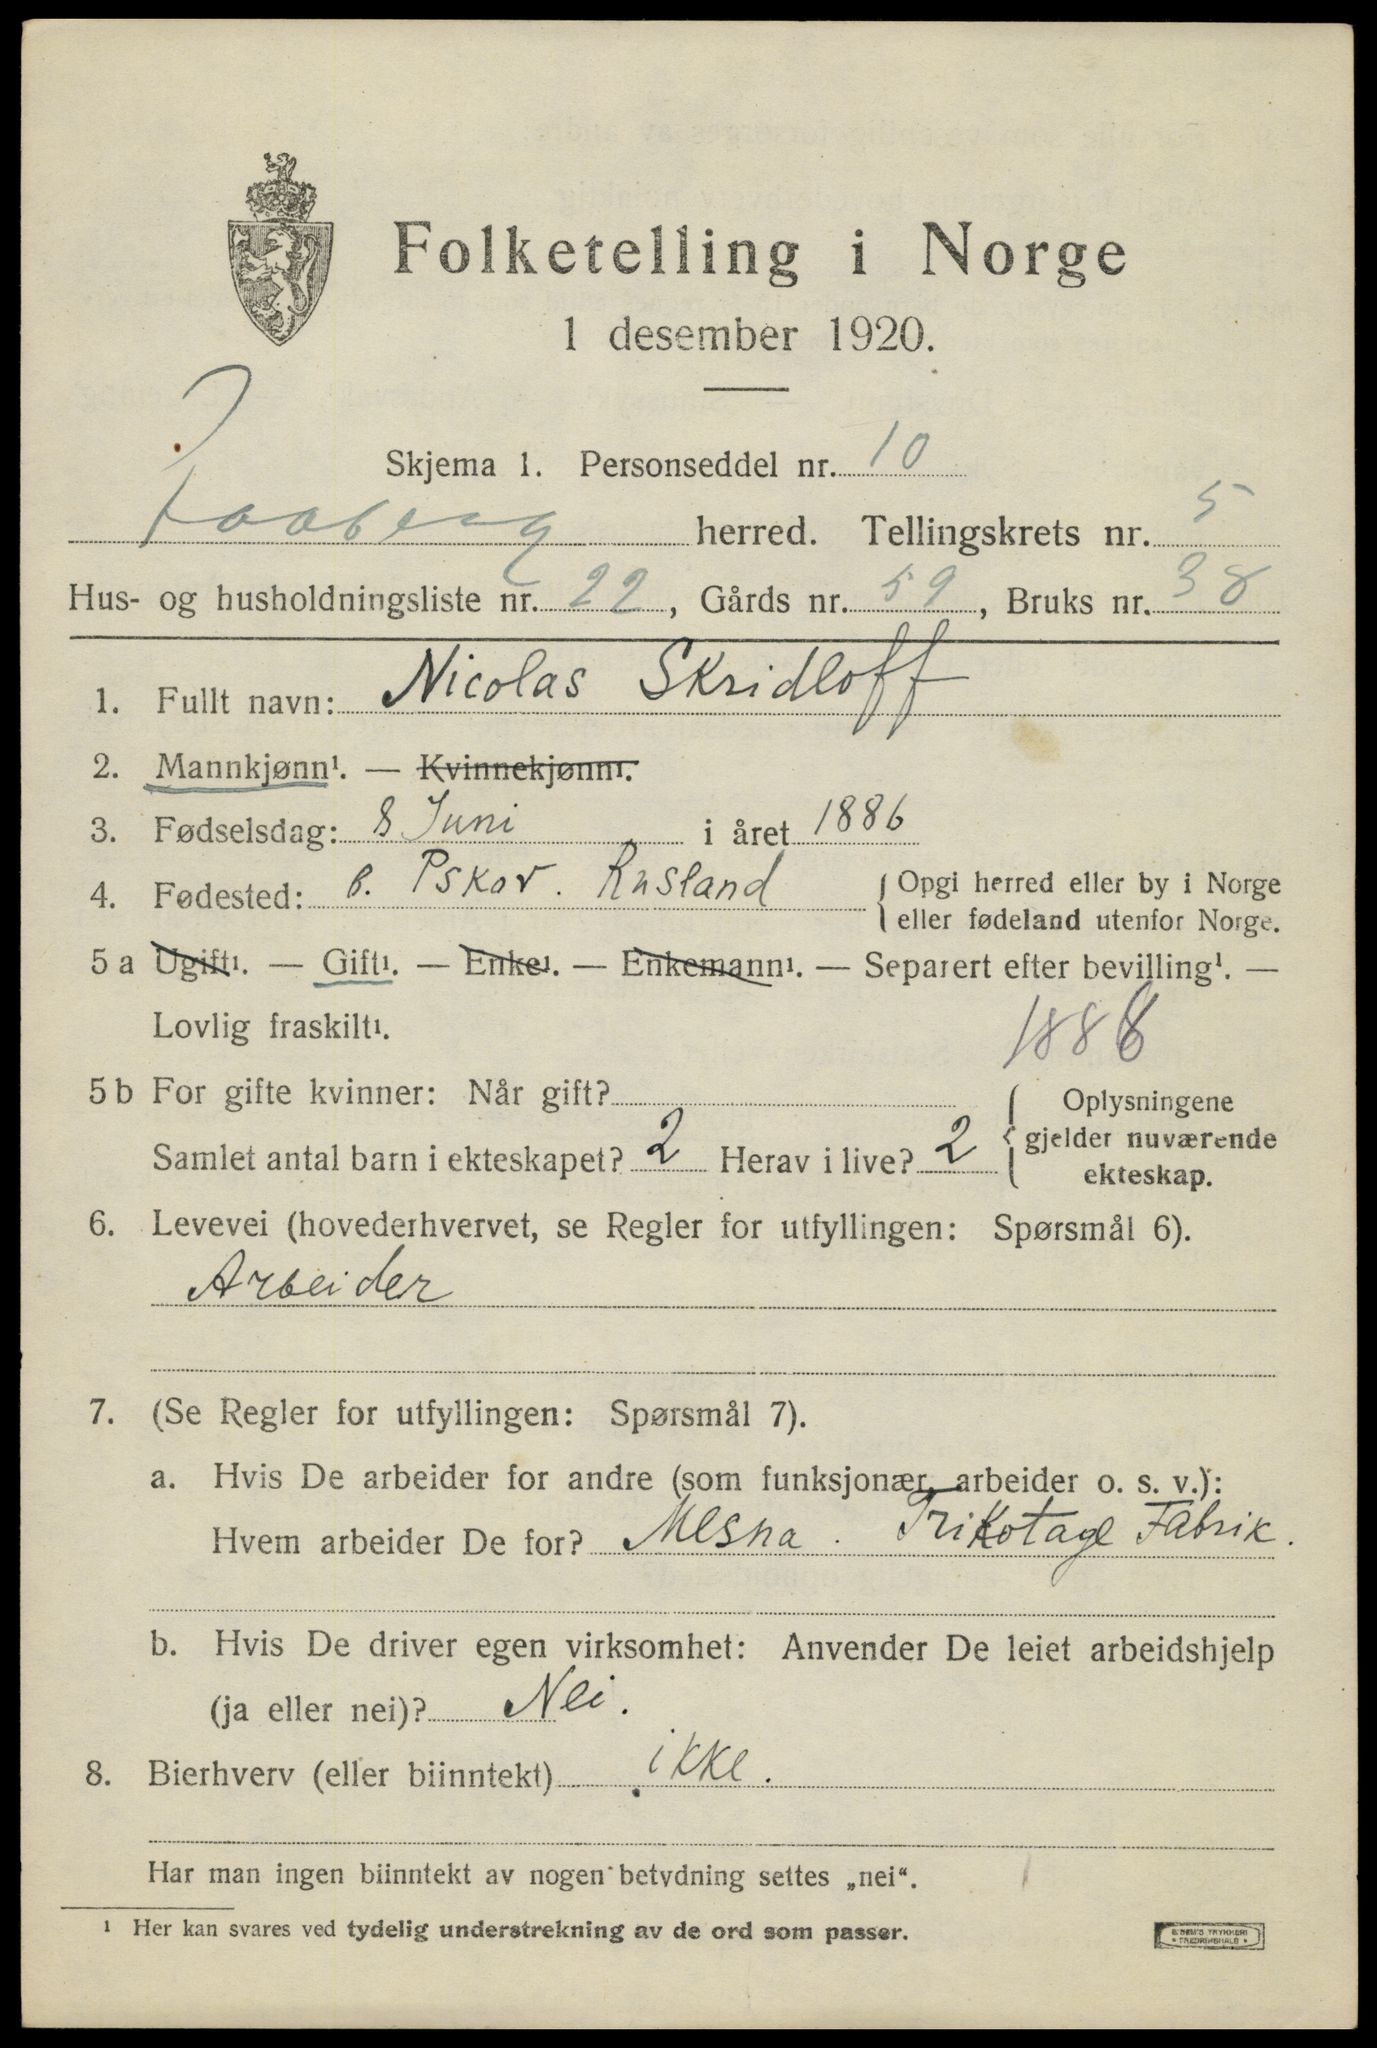 Folketelling i Norge
1 desember 1920.
Skjema 1. Personseddel nr. 10
Faaberg herred. Tellingskrets nr. 5
Hus- og husholdningsliste nr. 22, Gårds nr. 59, Bruks nr. 38
1. Fullt navn: Nicolas Skridloff
2. Mannkjønn¹. — Kvinnekjønn¹.
3. Fødselsdag: 8 Juni i året 1886
4. Fødested: b. Pskov. Rusland
Opgi herred eller by i Norge
eller fødeland utenfor Norge.
5 a Ugift¹. — Gift¹. — Enke¹. — Enkemann¹. — Separert efter bevilling¹. —
Lovlig fraskilt¹.
1888
5 b For gifte kvinner: Når gift?
Samlet antal barn i ekteskapet? 2 Herav i live? 2
Oplysningene
gjelder nuværende
ekteskap.
6. Levevei (hovederhvervet, se Regler for utfyllingen: Spørsmål 6).
Arbeider
7. (Se Regler for utfyllingen: Spørsmål 7).
a. Hvis De arbeider for andre (som funksjonær, arbeider o. s. v.):
Hvem arbeider De for? Mesna. Trikotage Fabrik.
b. Hvis De driver egen virksomhet: Anvender De leiet arbeidshjelp
(ja eller nei)? Nei.
8. Bierhverv (eller biinntekt) ikke.
Har man ingen biinntekt av nogen betydning settes „nei“.
¹ Her kan svares ved tydelig understrekning av de ord som passer.